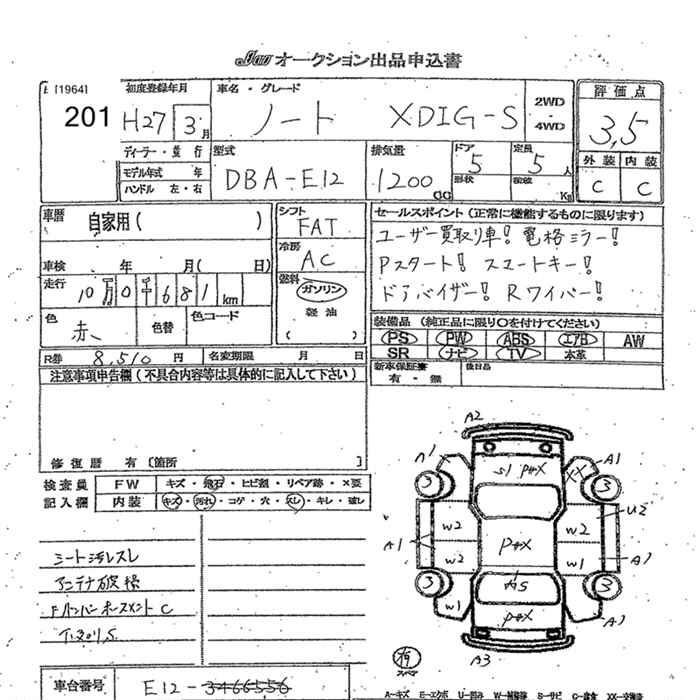 JAA オークション出品申込書
[1964]
201
初度登録年月
H27 3月
車名・グレード
ノート XDIG-S
2WD
4WD
評価点
3.5
外装 内装
C C
ディーラー・並行
モデル年式 年
ハンドル 左・右
型式
DBA-E12
排気量
1200 CC
ドア
5
形状
定員
5人
積載
Kg
車歴
自家用( )
車検 年 月( 日)
走行
10万0千681km
色
赤
色替
色コード
シフト
FAT
冷房
AC
燃料
ガソリン
軽油
( )
セールスポイント(正常に機能するものに限ります)
ユーザー買取り車! 電格ミラー!
Pスタート! スマートキー!
ドアバイザー! Rワイパー!
装備品 (純正品に限り○を付けてください)
PS PW ABS エアB AW
SR ナビ TV 本革
新車保証書
有・無
後日品
R券 8,510円 名変期限 月 日
注意事項申告欄(不具合内容等は具体的に記入して下さい)
修復歴 有〔箇所 〕
検査員 FW キズ・飛石・ヒビ割・リペア跡・×要
記入欄 内装 キズ・汚れ・コゲ・穴・スレ・キレ・破し
シート汚レスレ
アンテナ破損
車台番号 E12-3466556
A2
A1 S1 PaX XX A1
3 3
U2
W2 W2
A1 PaX A1
W2 W2
3 AS 3
W1 PaX W1
A1
A3
有
スペア
A-キズ E-エクボ U-凹み W-補修跡 S-サビ C-腐食 XX-交換済